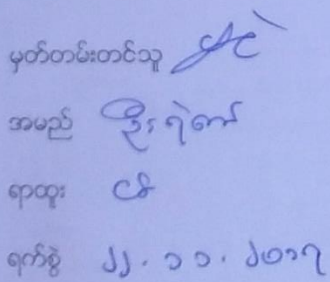 မှတ်တမ်းတင်သူ
အမည် ဦးရဲဇော်
ရာထူး ငစ
ရက်စွဲ ၂၂.၁၁.၂၀၁၇